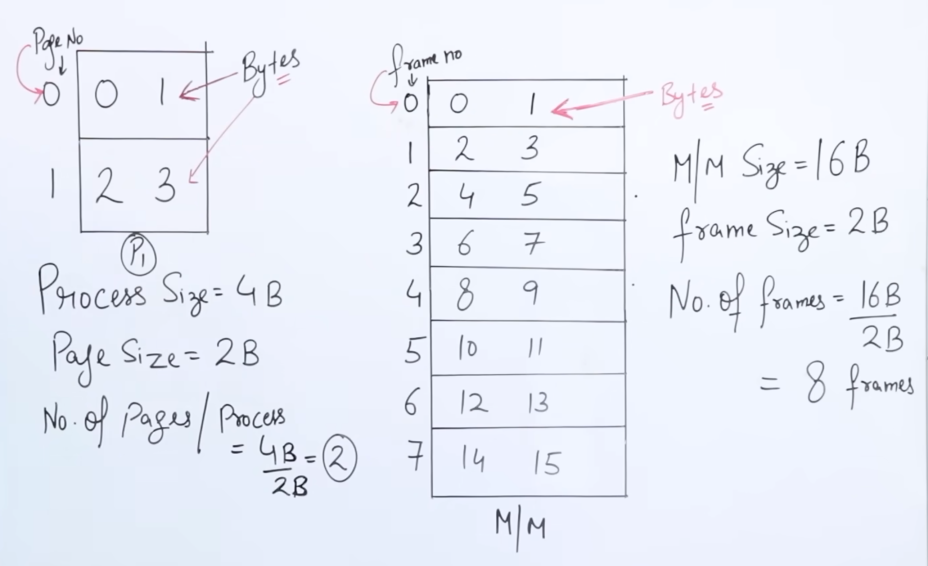 Page No
0 0 1
Bytes
1 2 3
P1
Process Size = 4B
Page Size = 2B
No. of Pages/Process
= 4B/2B = 2
frame no
0 0 1
Bytes
1 2 3
2 4 5
3 6 7
4 8 9
5 10 11
6 12 13
7 14 15
M/M
M/M Size = 16B
frame Size = 2B
No. of frames = 16B/2B
= 8 frames